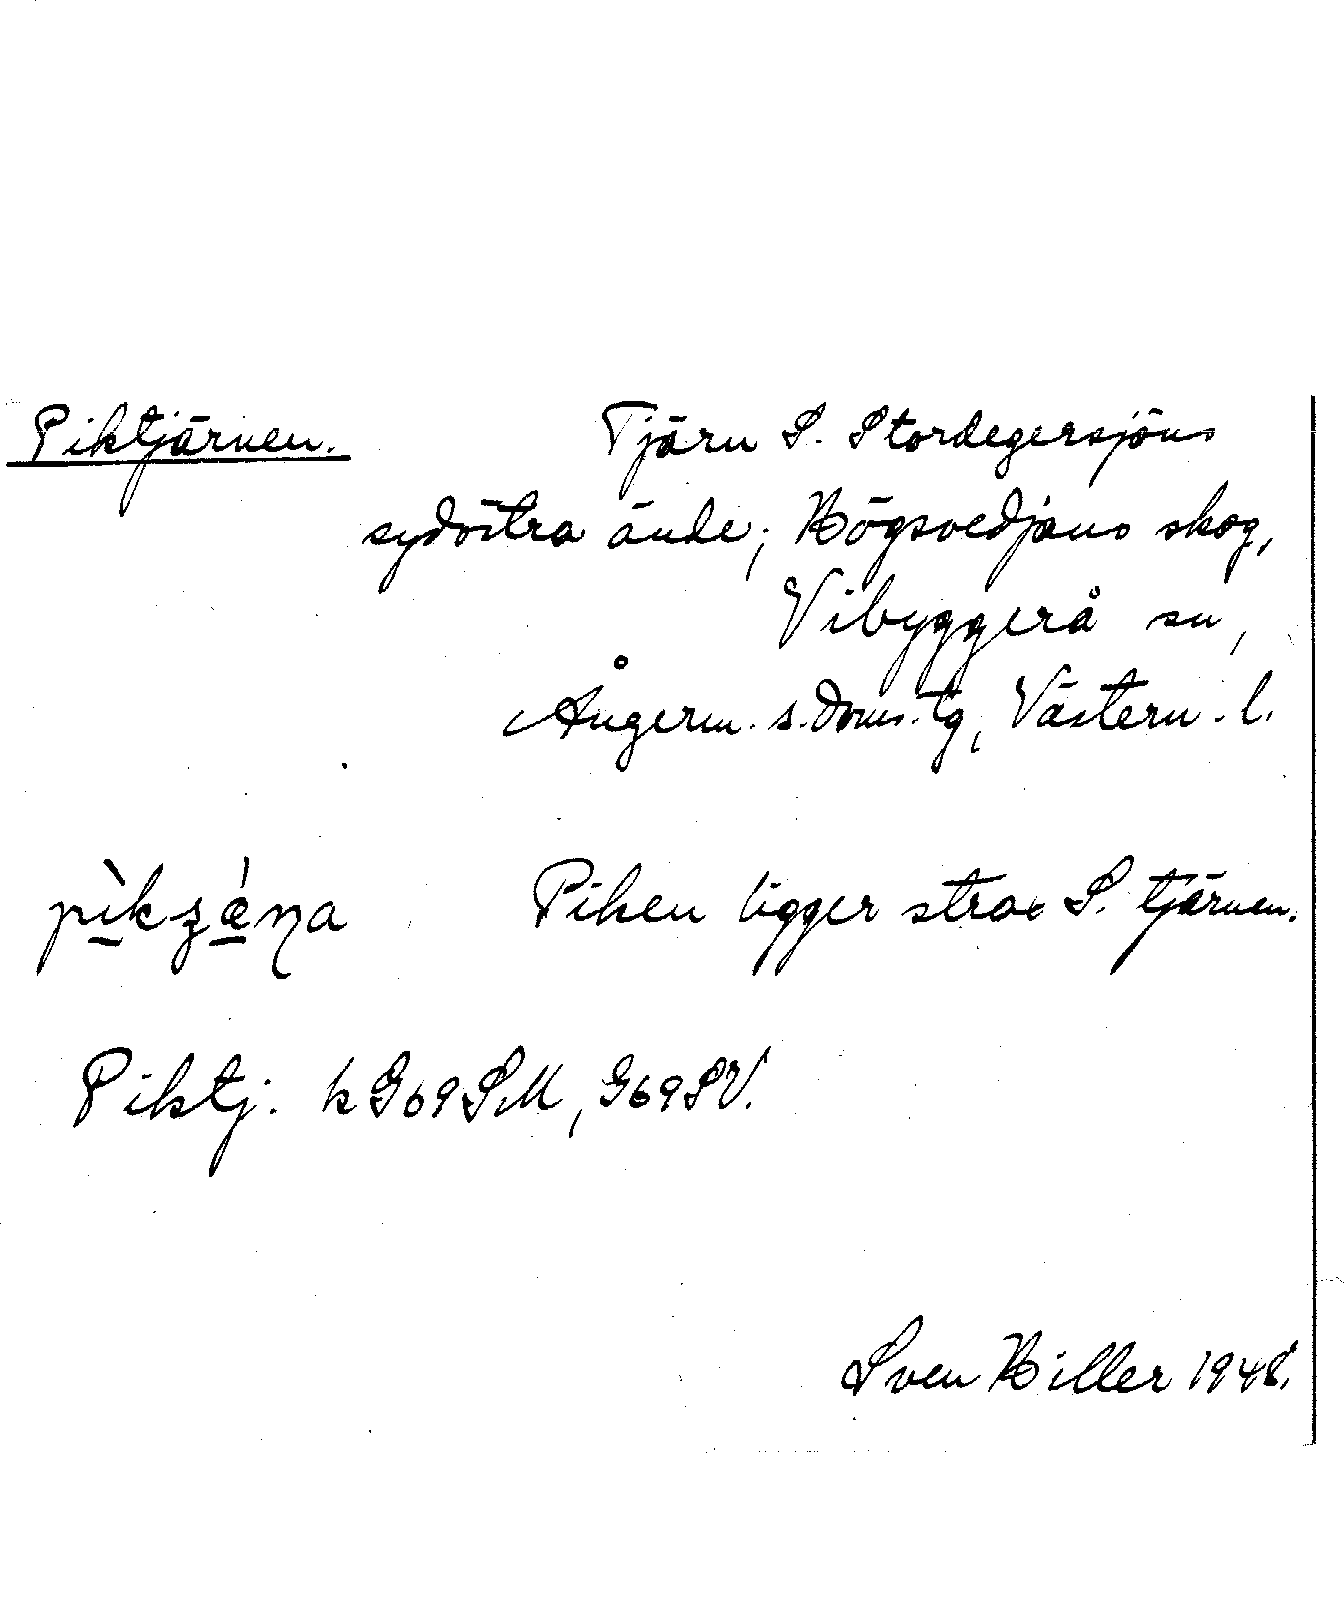 Piktjärnen. Tjärn S. Stordegersjöns
sydöstra ände; Högsvedjans skog,
Vibyggerå sn,
Ångerm. s. doms. lg, Västern. l.
pìkʒǽṇa Piken ligger strax S. tjärnen.
Piktj. k G69SM, G69SV.
Sven Hiller 1948.